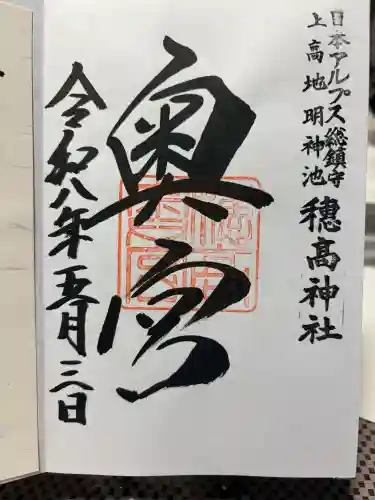 日本アルプス総鎮守
上高地明神池
穗髙神社
奥宮
令和八年五月三日